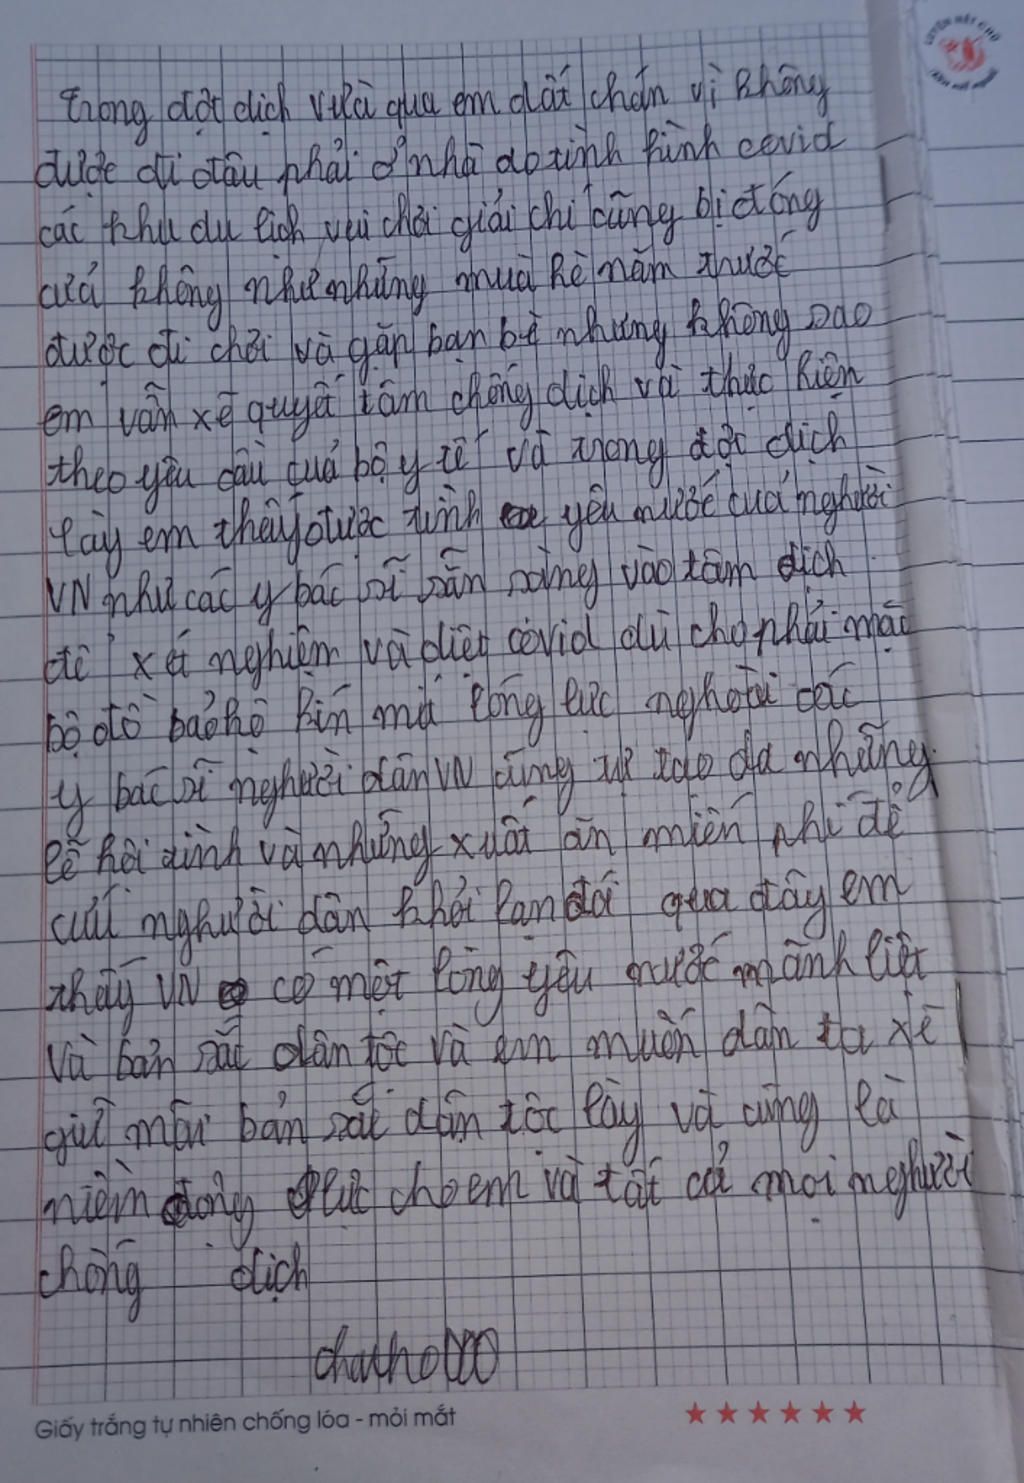 trong đợt dịch vừa qua em dất chán vì không
được đi đâu phải ở nhà do tình hình covid
các khu du lịch vui chơi giải chí cũng bị đóng
cửa không như những mùa hè năm trước
được đi chơi và gặp bạn bè nhưng không sao
em vẫn xẽ quyết tâm chống dịch và thực hiện
theo yêu cầu của bộ y tế và trong đợt dịch
lày em thấy được tình yêu nước của nghười
VN như các y bác sĩ sẵn sàng vào tâm dịch
để xét nghiệm và diệt covid dù cho phải mặc
bộ đồ bảo hộ kín mít lóng lực nghoài các
y bác sĩ nghười dân VN cũng tự tạo da những
lễ hội tình và những xuất ăn miễn phí để
cứu nghười dân khỏi lạn đói qua đây em
thấy VN có một lòng yêu nước mãnh liệt
và bản sắc dân tộc và em muốn dân ta xẽ
giữ mãi bản sắc dân tộc lày và cũng là
niềm động lực cho em và tất cả mọi nghười
chống dịch
Giấy trắng tự nhiên chống lóa - mỏi mắt